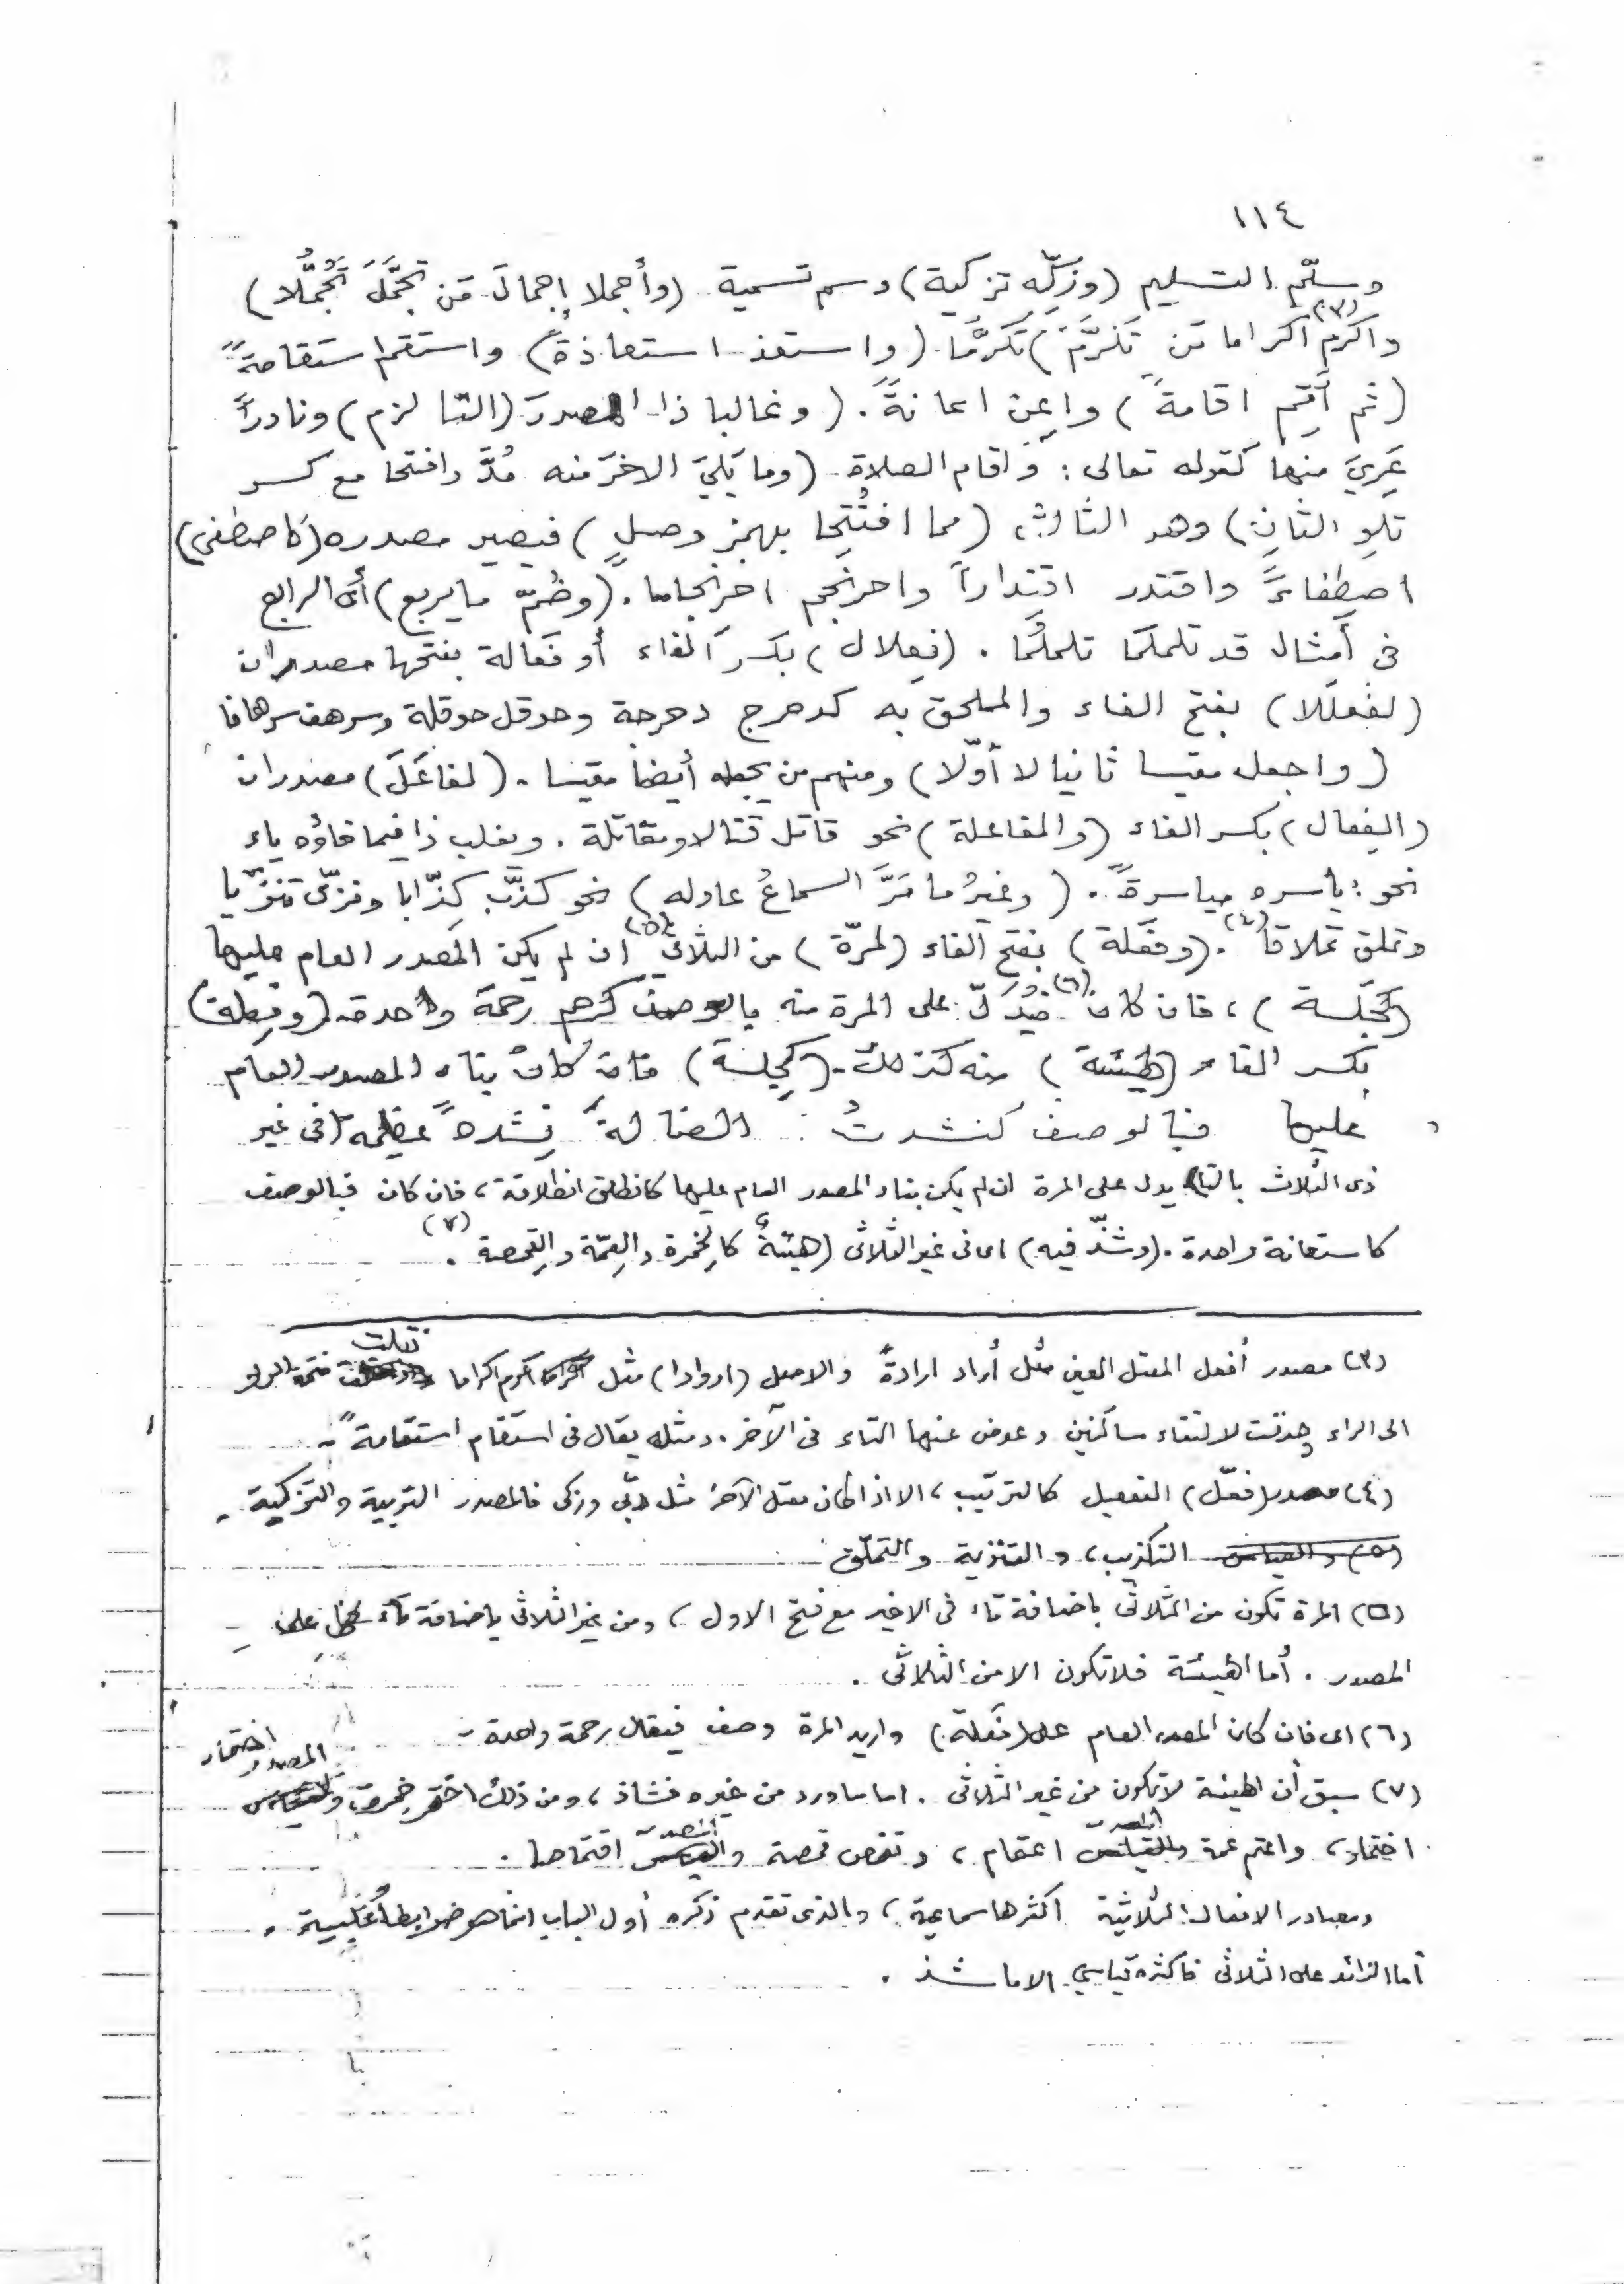 ١١٤
وسلّم التسليم (وزكِّه تزكية) وسم تسمية (وأجملا إجمالَ مَن تجمَّلَ تَجُمُّلا)
واكرم(٣) اكراما مَن تَكَرَّمَ) تكرُّما. (واستعذ استعاذةً) واستقم استقامةً
(ثم أَقِم اقامةً) واعِن اعانةً. (وغالبا ذا المصدرَ (التا لزم) ونادراً
عَرِيَ منها كقوله تعالى: واقام الصلاة (وما يَليَ الاخرَ منه مُدَّ وافتحا مع كسر
تلوِ الثانِ) وهو الثالث، (مما افتُتِحا بهمزِ وصلٍ) فيصير مصدره (كاصطفى)
اصطِفاءً واقتدر اقتداراً واحرنجم احرنجاما. (وضُمّ ما يربع) أي الرابع
فى أمثال قد تلملَما تلملُما. (فِعلال) بكسر الفاء أو فَعالة بفتحها مصدران
(لفَعلَلا) بفتح الفاء والملحق به كدحرج دحرجة وحوقل حوقلة وسرهف سرهافا
(واجعل مقيسا ثانيا لا أوّلا) ومنهم من يجعله أيضاً مقيسا. (لفاعَلَ) مصدران
(الفِعال) بكسر الفاء (والمفاعلة) نحو قاتل قتالا ومقاتلة. ويغلب ذا فيما فاؤه ياء
نحو: ياسره مياسرةً. (وغيرُ ما مَرَّ السماعُ عادله) نحو كذّب كِذّابا ونزّى تنزّيا
وتملق تملاقاً(٤). (وفَعلة) بفتح الفاء (لمرّة) من الثلاثي(٥) ان لم يكن المصدر العام عليها
(كجَلسة)، فان كان(٦) فيُدَلّ على المرة منه بالوصف كرحم رحمة واحدة. (وفِعلة)
بكسر الفاء (لهيئة) منه كذلك. (كجِلسة) فان كان بناء المصدر العام
عليها فبالوصف كنشدتُ الضالةَ نِشدةً عظيمة (فى غير
ذى الثلاث بالتا) يدل على المرة ان لم يكن بناء المصدر العام عليها كانطلق انطلاقة، فان كان فبالوصف
كاستعانة واحدة. (وشذّ فيه) اى فى غير الثلاثى (هيئةٌ كالخِمرة) والعِمّة والقِمصة(٧).
(٣) مصدر أفعل المعتل العين مثل أراد ارادةً والاصل (اروادا) مثل اكرم اكراما نقلت فتحة الواو
الى الراء وحذفت لالتقاء ساكنين وعوض عنها التاء فى الآخر. ومثله يقال فى استقام استقامةً.
(٤) مصدر (فعّل) التفعيل كالترتيب، الا اذا كان معتل الآخر مثل ربّى وزكى فالمصدر التربية والتزكية.
(٥) والقياس التكذيب، والتنزية والتملّق
(٥) المرة تكون من الثلاثى باضافة تاء فى الاخير مع فتح الاول، ومن غير الثلاثى باضافة تاء على
المصدر. أما الهيئة فلا تكون الا من الثلاثى.
(٦) اى فان كان المصدر العام على (فَعلة) واريد المرة وصف فيقال رحمة واحدة.
(٧) سبق أن الهيئة لا تكون من غير الثلاثى. اما ما ورد من غيره فشاذ، ومن ذلك اختمر خِمرة، والمصدر اختمار
اختمار، واعتم عمة والمصدر اعتمام، وتقمص قمصة والمصدر اقتماصا.
ومصادر الافعال الثلاثية اكثرها سماعية، والذى تقدم ذكره أول الباب انما هو ضوابط أغلبية.
أما الزائد على الثلاثى فاكثره قياسي الا ما شذ.